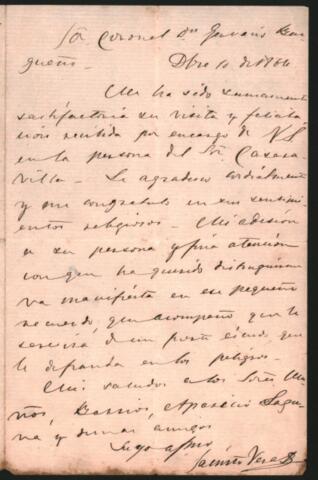 Sor. Coronel Dn. Gervasio Bur
gueño.
Dbre 10 de 1864
Me ha sido sumamente
satisfactoria su visita y felicita
ción rendida por encargo de V.S.
en la persona del Sor. Casara
villa. Le agradezco cordialmente
y me congratulo en sus sentimi
entos religiosos. Mi adesion
a su persona y fina atención
con que ha querido distinguirme
va manifiesta en ese pequeño
recuerdo, que acompaño que le
servirá de un fuerte escudo, que
le defienda en los peligros.
Mis saludos a los Sores. Mu
ños, Barrios, Aparicio, Lagu
na y demas amigos
Suyo afmo
Jacinto Vera